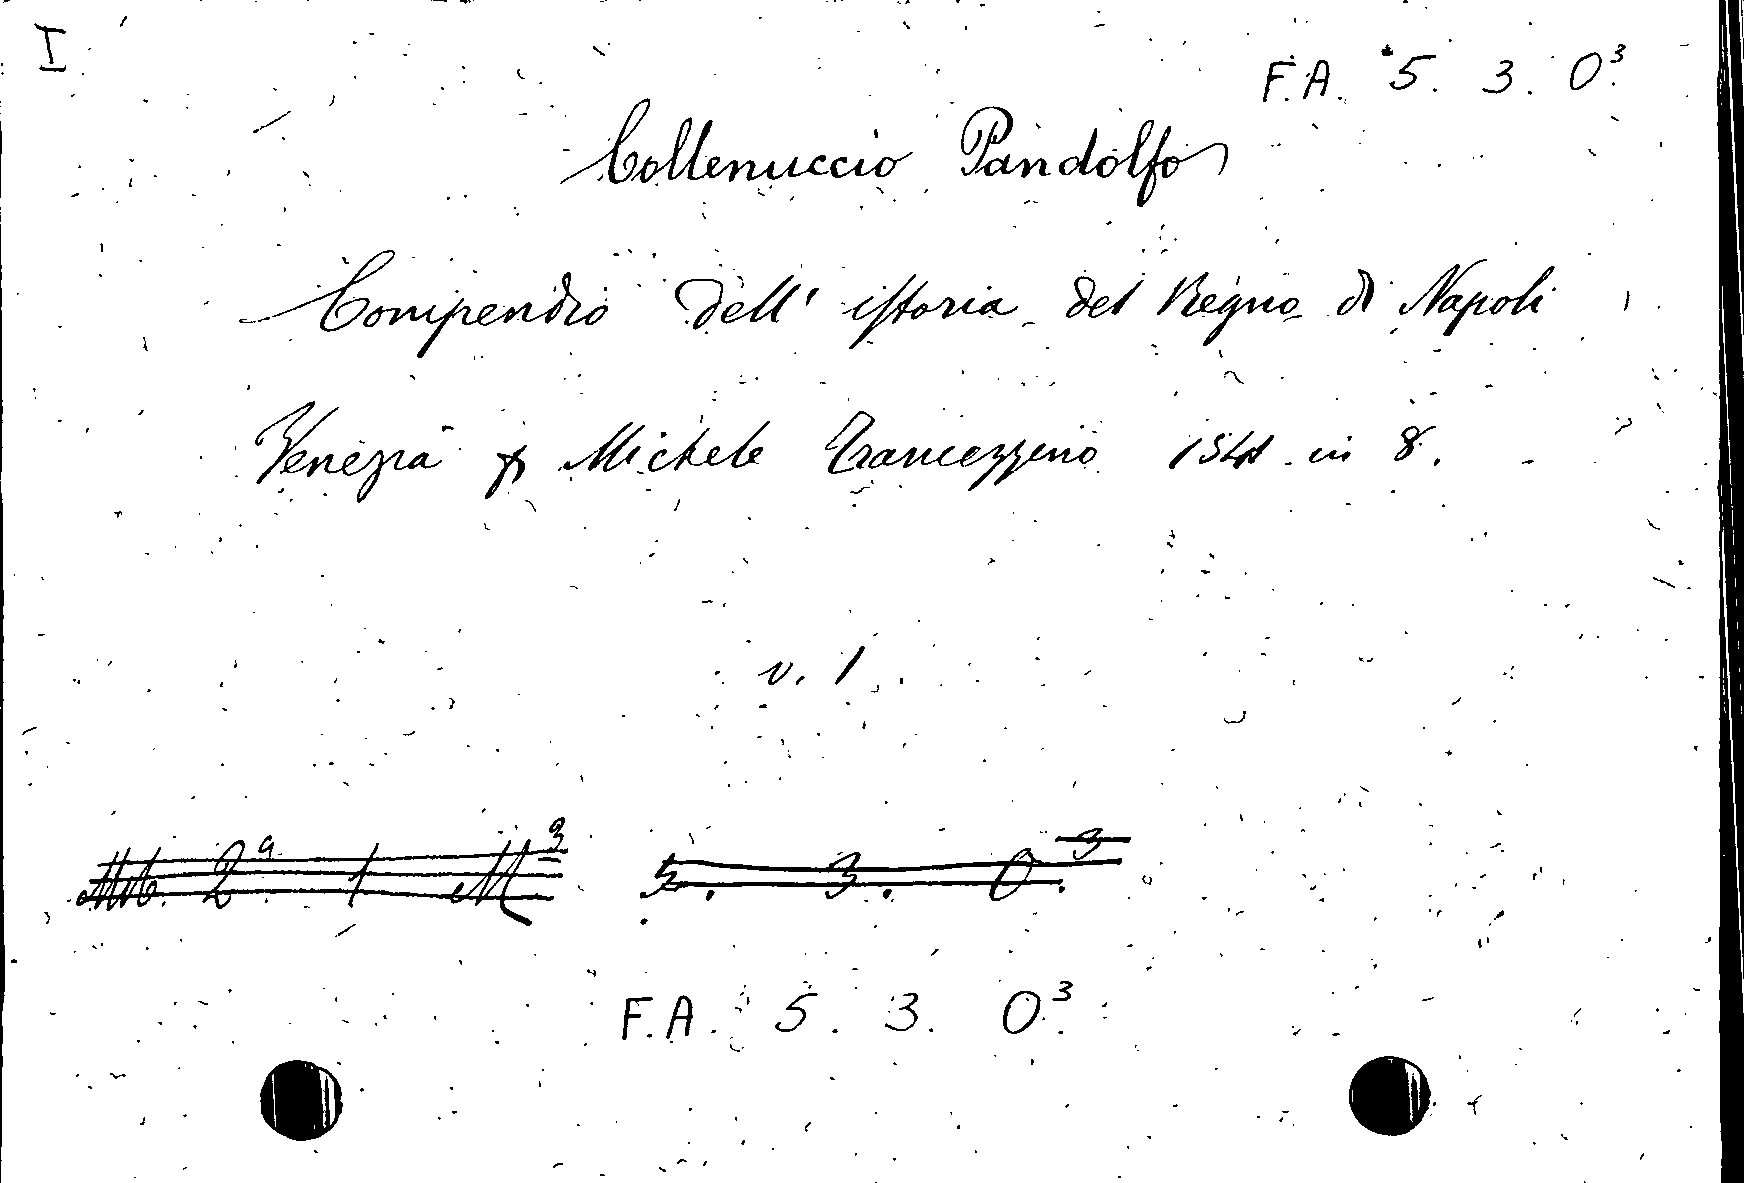 I
F.A. 5. 3. O³.
Collenuccio Pandolfo
Compendio dell' istoria del Regno di Napoli
Venezia Michele Tramezzino 1541 in 8.
v. 1
2ª 1 M³ 5. 3. O.³
F.A. 5. 3. O³.